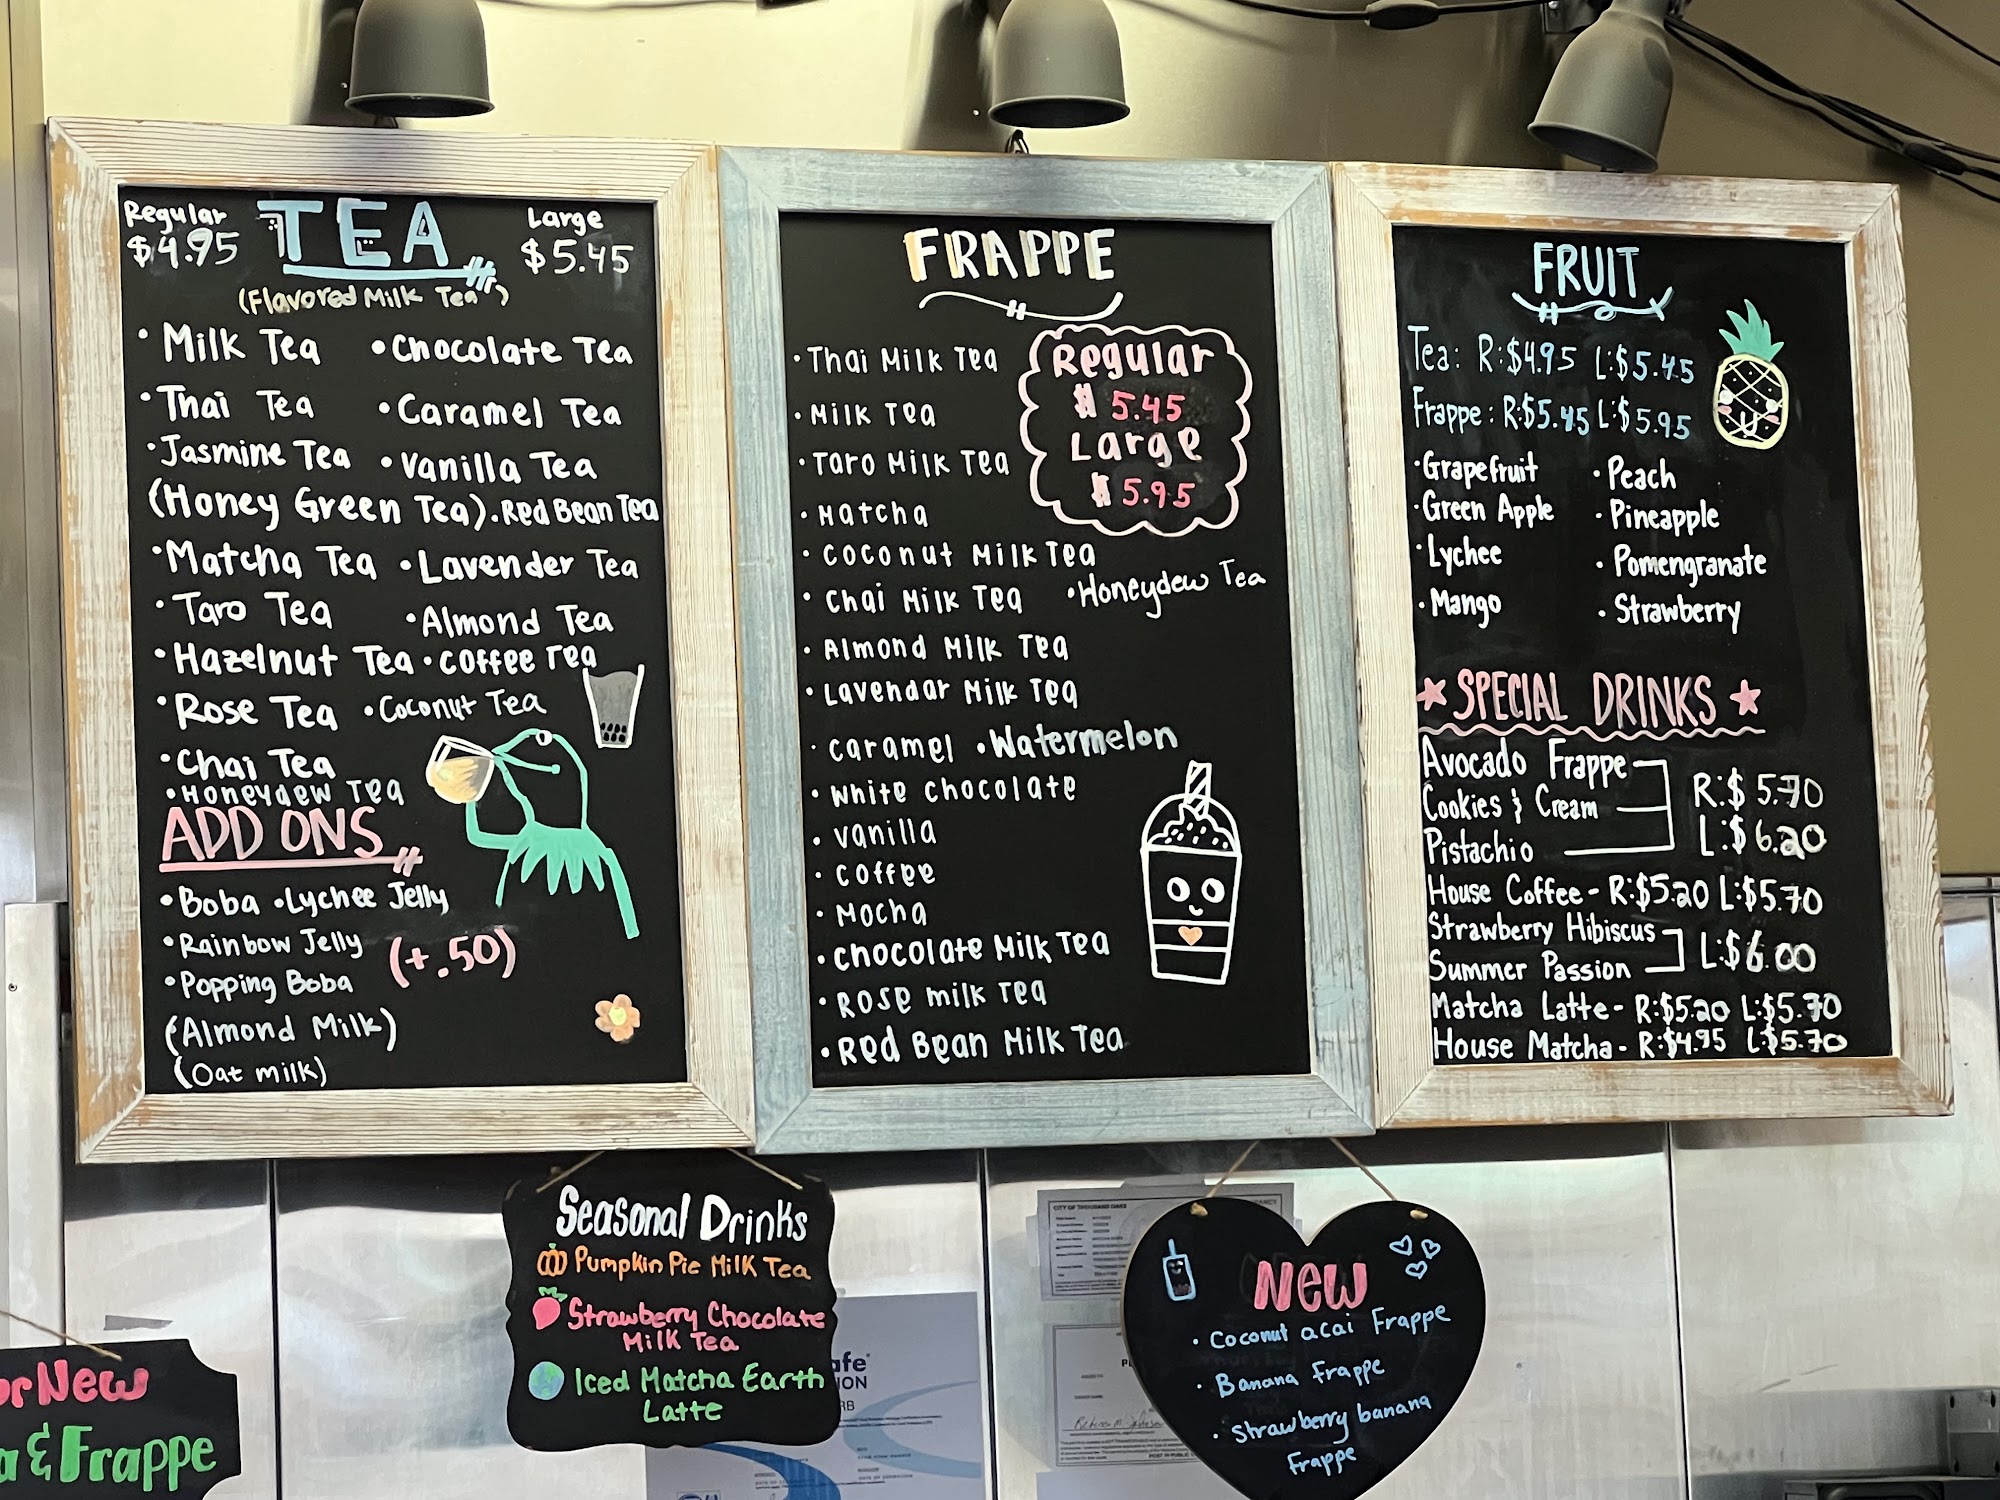 Regular TEA Large
$4.95 $5.45
(Flavored Milk Tea)
• Milk Tea • Chocolate Tea
• Thai Tea • Caramel Tea
• Jasmine Tea • Vanilla Tea
(Honey Green Tea) • Red Bean Tea
• Matcha Tea • Lavender Tea
• Taro Tea • Almond Tea
• Hazelnut Tea • Coffee Tea
• Rose Tea • Coconut Tea
• Chai Tea
• Honeydew Tea
ADD ONS
• Boba • Lychee Jelly
• Rainbow Jelly
(+.50)
• Popping Boba
(Almond Milk)
(Oat milk)
FRAPPE
• Thai Milk Tea
• Milk Tea
• Taro Milk Tea
• Matcha
• Coconut Milk Tea
• Chai Milk Tea • Honeydew Tea
• Almond Milk Tea
• Lavendar Milk Tea
• Caramel • Watermelon
• White Chocolate
• Vanilla
• Coffee
• Mocha
• Chocolate Milk Tea
• Rose milk Tea
• Red Bean Milk Tea
Regular
$ 5.45
Large
$ 5.95
FRUIT
Tea: R:$4.95 L:$5.45
Frappe: R:$5.45 L:$5.95
• Grapefruit • Peach
• Green Apple • Pineapple
• Lychee • Pomengranate
• Mango • Strawberry
SPECIAL DRINKS
Avocado Frappe
Cookies & Cream
Pistachio
R:$5.70
L:$6.20
House Coffee - R:$5.20 L:$5.70
Strawberry Hibiscus
Summer Passion
L:$6.00
Matcha Latte - R:$5.20 L:$5.70
House Matcha - R:$4.95 L:$5.70
Seasonal Drinks
Pumpkin Pie Milk Tea
Strawberry Chocolate
Milk Tea
Iced Matcha Earth
Latte
New
• Coconut acai Frappe
• Banana Frappe
• Strawberry banana
Frappe
New
& Frappe
CITY OF THOUSAND OAKS